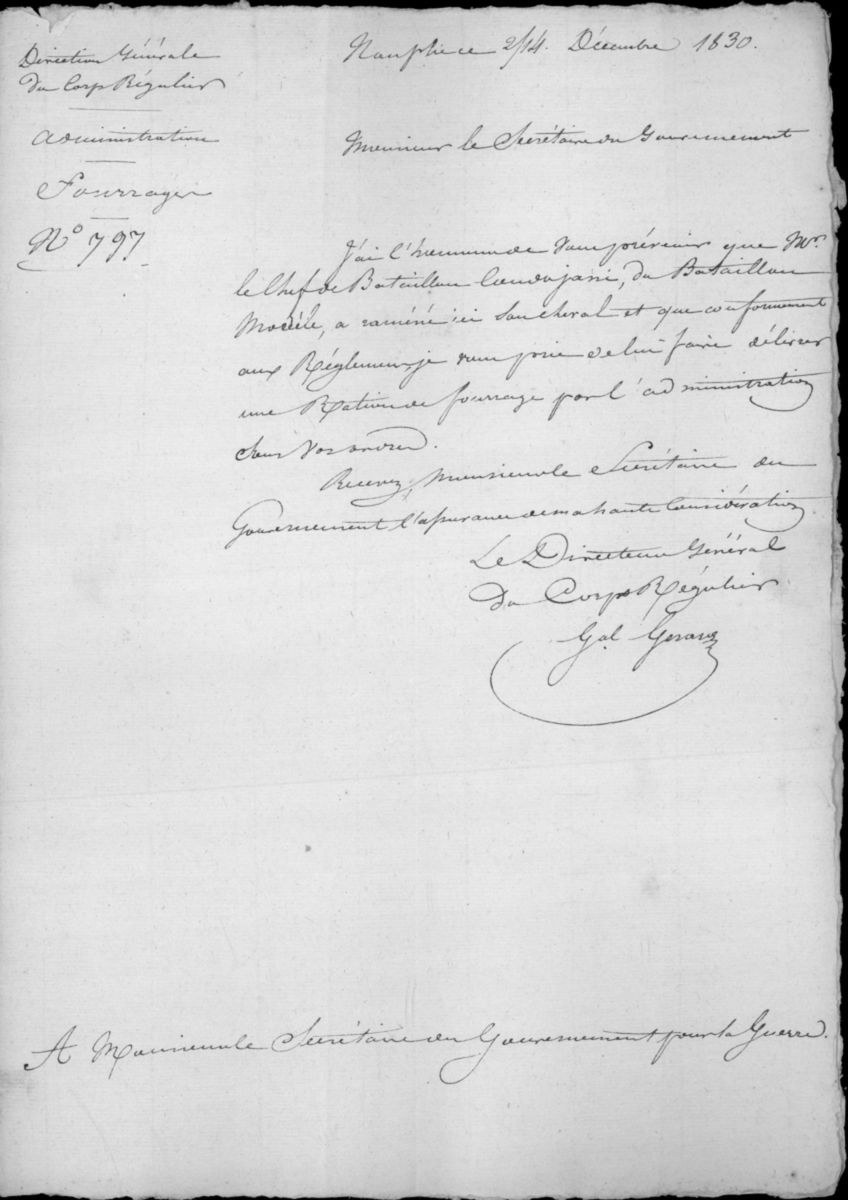 Direction Générale
du Corps Régulier
Administration
Fourrages
N° 797
Nauplie ce 2/14. Décembre 1830.
Monsieur le Secrétaire du Gouvernement
J'ai l'honneur de vous prévenir que Mr.
le Chef de Bataillon, du Bataillon
Modèle, a raméné ici son cheval et que conformément
aux Réglemens, je vous prie de lui faire délivrer
une Ration de fourrage par l'administration
sous vos ordres.
Recevez, Monsieur le Secrétaire du
Gouvernement l'assurance de ma haute Considération
Le Directeur Général
du Corps Régulier
Gal Gerard
A Monsieur le Secrétaire du Gouvernement pour la Guerre.